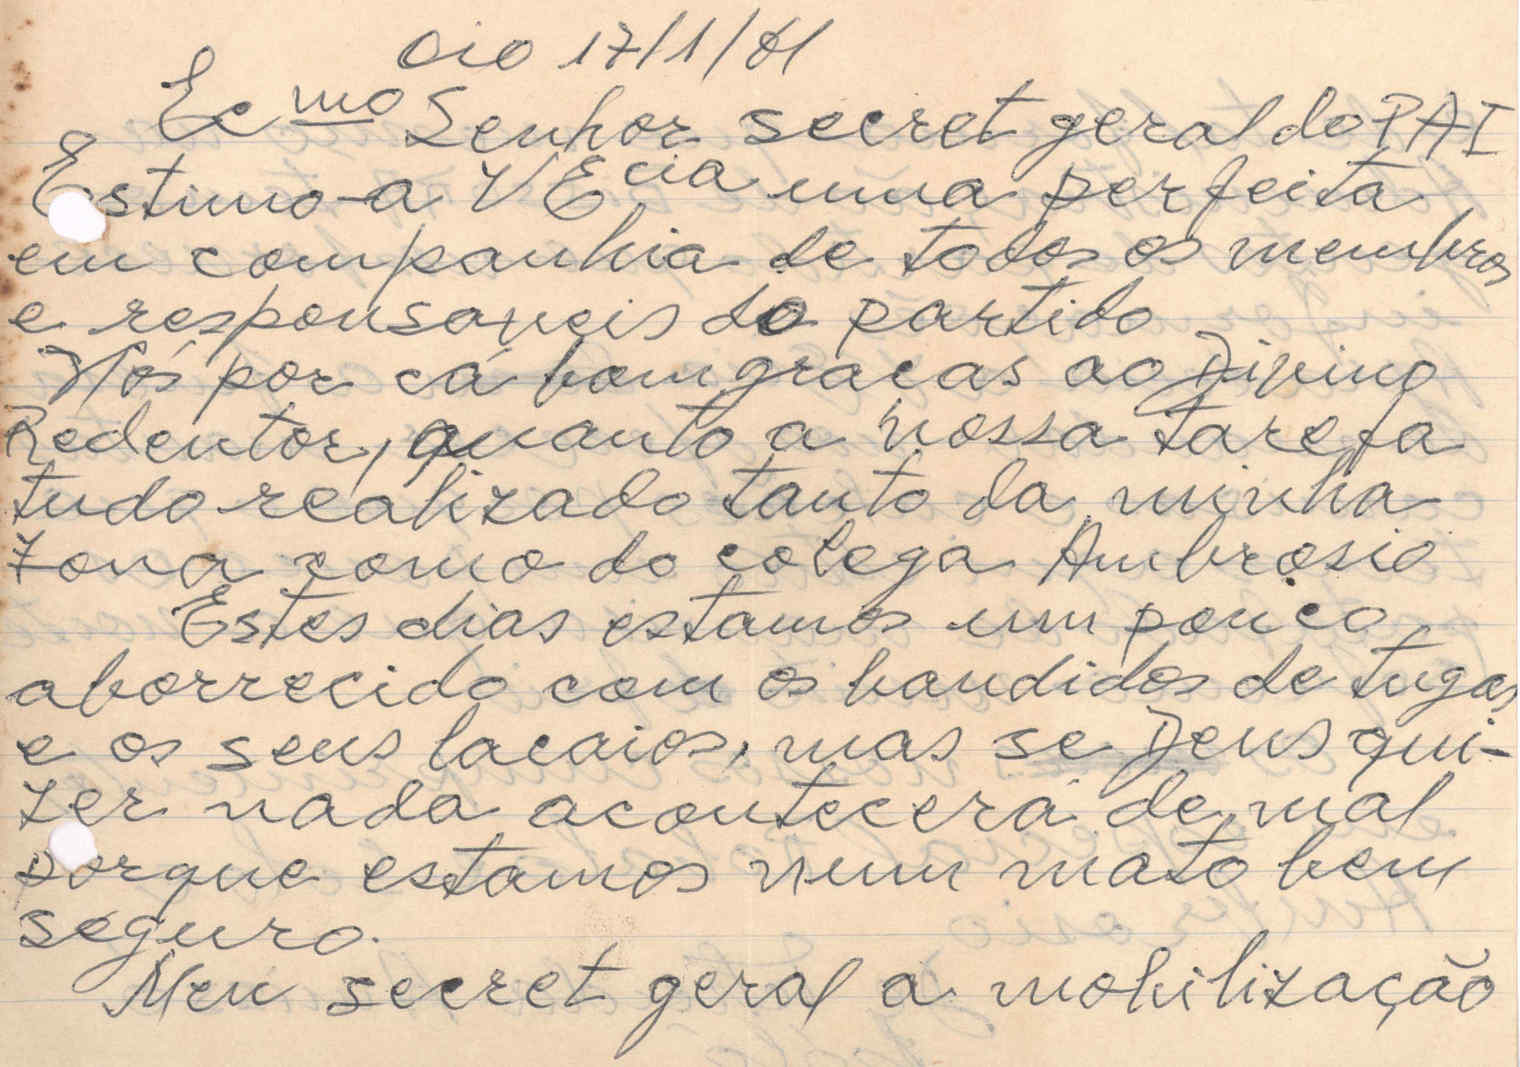 Oio 17/1/61
Ecmo Senhor secret geral do PAI
Estimo-a VEcia uma perfeita
em companhia de todos os membros
e responsaveis do partido
Nós por cá bom graças ao Divino
Redentor, quanto a nossa tarefa
tudo realizado tanto da minha
zona como do colega Ambrosio
Estes dias estamos um pouco
aborrecido com os bandidos de tugas
e os seus lacaios, mas se Deus qui-
zer nada acontecerá de mal
porque estamos num mato bem
seguro.
Meu secret geral a mobilização